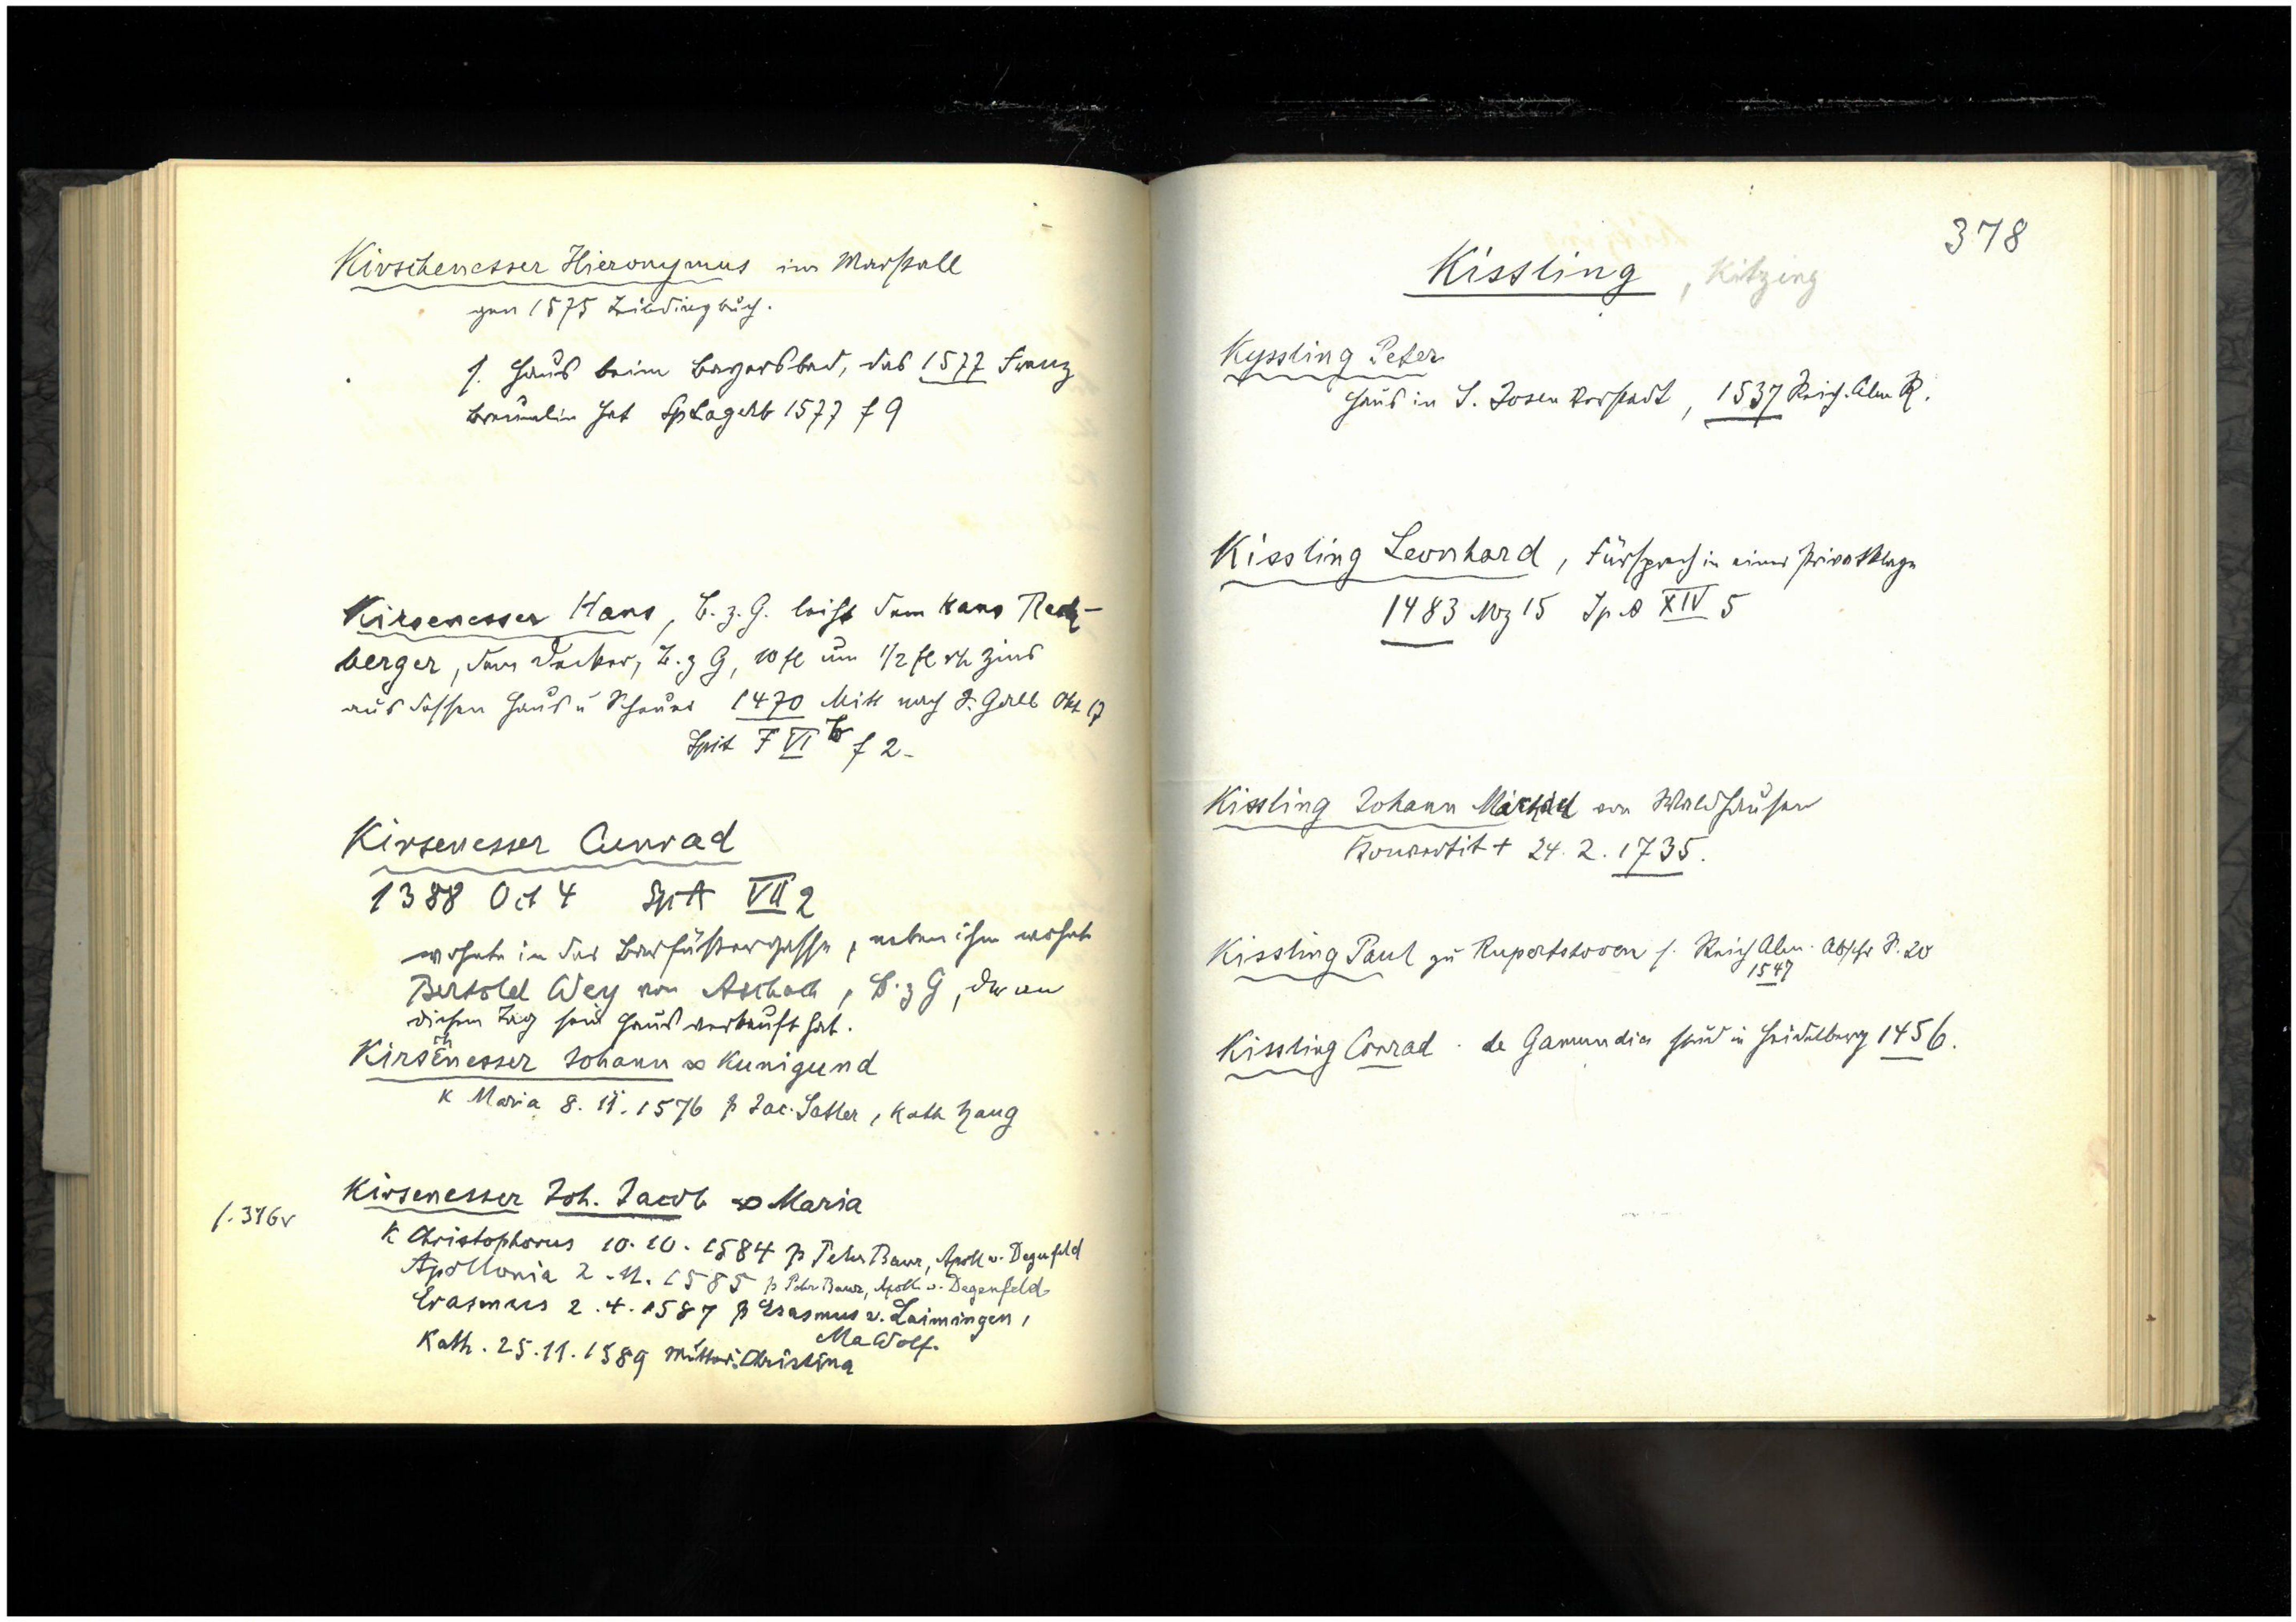 Kirschenesser Hieronymus im Marstall
gen 1575 Leibdingbuch.
s. Haus beim Bayersbad, das 1577 Franz
Bräunlin hat SpLagerb 1577 f 9
Kirsenesser Hans, B. z. G. leiht dem Hans Rech-
berger, dem Decker, B. z G, 10 fl um 1/2 fl rh Zins
aus dessen Haus u Scheuer 1470 Mitt nach S. Gall Okt 17
Spit F VI b f 2
Kirsenesser Cunrad
1388 Oct 4 SpA VII 2
wohnte in der Barfüssergasse, neben ihm wohnt
Bertold Wey von Aschach, B. z G, der an
diesem Tag sein Haus verkauft hat.
Kirschenesser Johann ∞ Kunigund
K Maria 8. 11. 1576 p Jac. Satler, Kath Haug
Kirsenesser Joh. Jacob ∞ Maria
s. 376v
K Christophorus 10. 10. 1584 p Peter Baur, Apoll v. Degenfeld
Apollonia 2. 11. 1585 p Peter Baur, Apoll v. Degenfeld
Erasmus 2. 4. 1587 p Erasmus v. Laimingen,
Ma Wolf.
Kath. 25. 11. 1589 Mutter: Christina
378
Kissling, Kitzing
Kyssling Peter
Haus in S. Josen Vorstadt, 1537 Reich. Alm R.
Kissling Leonhard, Fürsprech in einer Privatklage
1483 Mz 15 SpA XIV 5
Kissling Johann Michael von Waldhausen
Konvertit + 24. 2. 1735.
Kissling Paul zu Rupertshoven s. Reich Alm. Abschr S. 20
1547
Kissling Conrad de Gamundia stud in Heidelberg 1456.